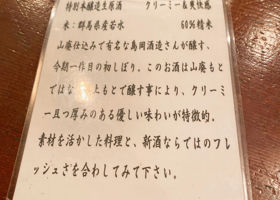 特別本醸造生原酒 クリーミー&爽快感
米:群馬県産若水 60%精米
山廃仕込みで有名な島岡酒造さんが醸す、
今期一作目の初しぼり。このお酒は山廃もと
ではな 上もとで醸す事により、クリーミ
ー且つ厚みのある優しい味わいが特徴的。
素材を活かした料理と、新酒ならではのフレ
ッシュさを合わしてみて下さい。